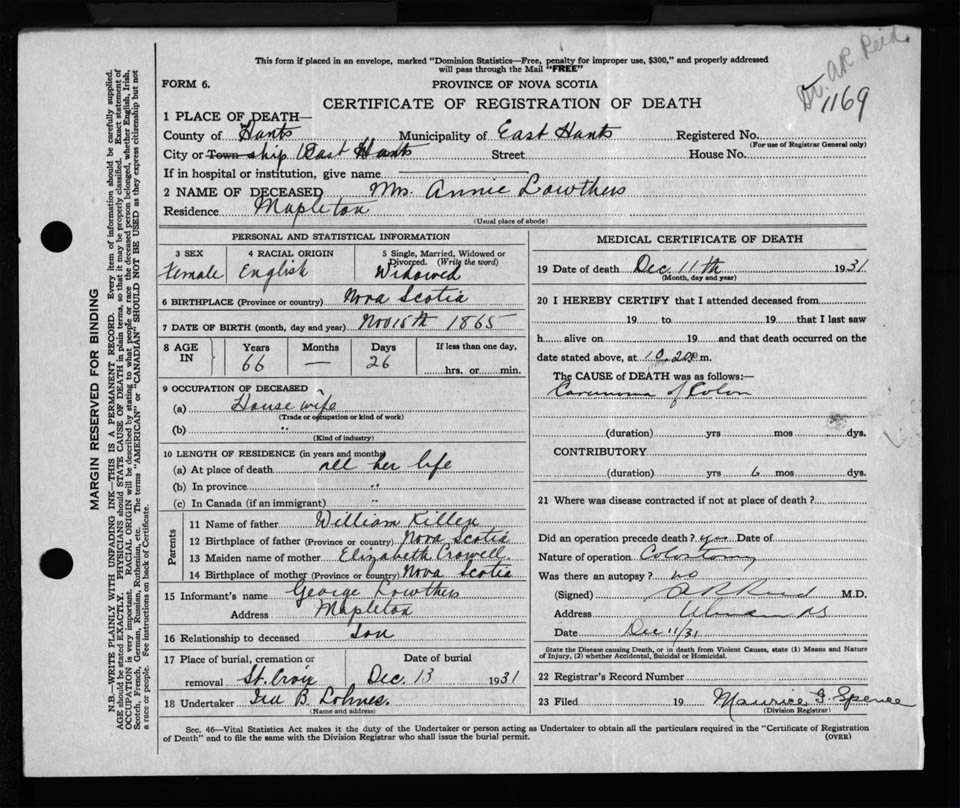 This form if placed in an envelope, marked "Dominion Statistics—Free, penalty for improper use, $300," and properly addressed
will pass through the Mail "FREE"
Dr. A R Reid
1169
FORM 6.
PROVINCE OF NOVA SCOTIA
CERTIFICATE OF REGISTRATION OF DEATH
1 PLACE OF DEATH—
County of Hants Municipality of East Hants Registered No.
(For use of Registrar General only)
City or Town ship East Hants Street House No.
If in hospital or institution, give name
2 NAME OF DECEASED Mrs. Annie Lowthers
Residence Mapleton
(Usual place of abode)
PERSONAL AND STATISTICAL INFORMATION
3 SEX 4 RACIAL ORIGIN 5 Single, Married, Widowed or
Divorced. (Write the word)
Female English Widowed
6 BIRTHPLACE (Province or country) Nova Scotia
7 DATE OF BIRTH (month, day and year) Nov 15th 1865
8 AGE IN Years Months Days If less than one day,
66 — 26 hrs. or min.
9 OCCUPATION OF DECEASED
(a) House wife
(Trade or occupation or kind of work)
(b) "
(Kind of industry)
10 LENGTH OF RESIDENCE (in years and months)
(a) At place of death all her life
(b) In province "
(c) In Canada (if an immigrant) "
Parents
11 Name of father William Killen
12 Birthplace of father (Province or country) Nova Scotia
13 Maiden name of mother Elizabeth Crowell
14 Birthplace of mother (Province or country) Nova Scotia
15 Informant's name George Lowthers
Address Mapleton
16 Relationship to deceased Son
17 Place of burial, cremation or Date of burial
removal St. Croix Dec. 13 1931
18 Undertaker Geo B. Lohnes.
(Name and address)
MEDICAL CERTIFICATE OF DEATH
19 Date of death Dec. 11th 1931
(Month, day and year)
20 I HEREBY CERTIFY that I attended deceased from
19 to 19 that I last saw
h alive on 19 and that death occurred on the
date stated above, at 10.20 p m.
The CAUSE of DEATH was as follows:—
of Colon
(duration) yrs mos dys.
CONTRIBUTORY
(duration) yrs 6 mos dys.
21 Where was disease contracted if not at place of death?
Did an operation precede death? yes Date of
Nature of operation Colostomy
Was there an autopsy? no
(Signed) A R Reid M.D.
Address NS
Date Dec 11/31
State the Disease causing Death, or in death from Violent Causes, state (1) Means and Nature
of Injury, (2) whether Accidental, Suicidal or Homicidal.
22 Registrar's Record Number
23 Filed 19 Maurice G. Spence
(Division Registrar)
Sec. 46—Vital Statistics Act makes it the duty of the Undertaker or person acting as Undertaker to obtain all the particulars required in the "Certificate of Registration
of Death" and to file the same with the Division Registrar who shall issue the burial permit. (OVER)
MARGIN RESERVED FOR BINDING
N.B.—WRITE PLAINLY WITH UNFADING INK—THIS IS A PERMANENT RECORD. Every item of information should be carefully supplied.
AGE should be stated EXACTLY. PHYSICIANS should STATE CAUSE OF DEATH in plain terms, so that it may be properly classified. Exact statement of
OCCUPATION is very important. RACIAL ORIGIN will be described by stating to what people or race the deceased person belonged, whether English, Irish,
Scotch, French, German, Russian, Ruthenian, etc. The terms "AMERICAN" or "CANADIAN" SHOULD NOT BE USED as they express citizenship but not
a race or people. See instructions on back of Certificate.